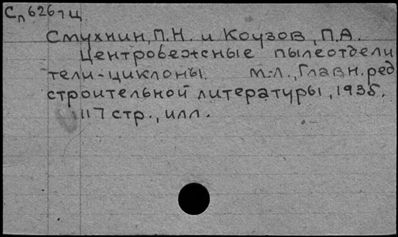 Сл626гц
Смухнин, П.Н. и Коузов, П.А.
Центробежные пылеотдели
тели-циклоны. М.-Л., Главн. ред
строительной литературы, 1935.
117 стр., илл.